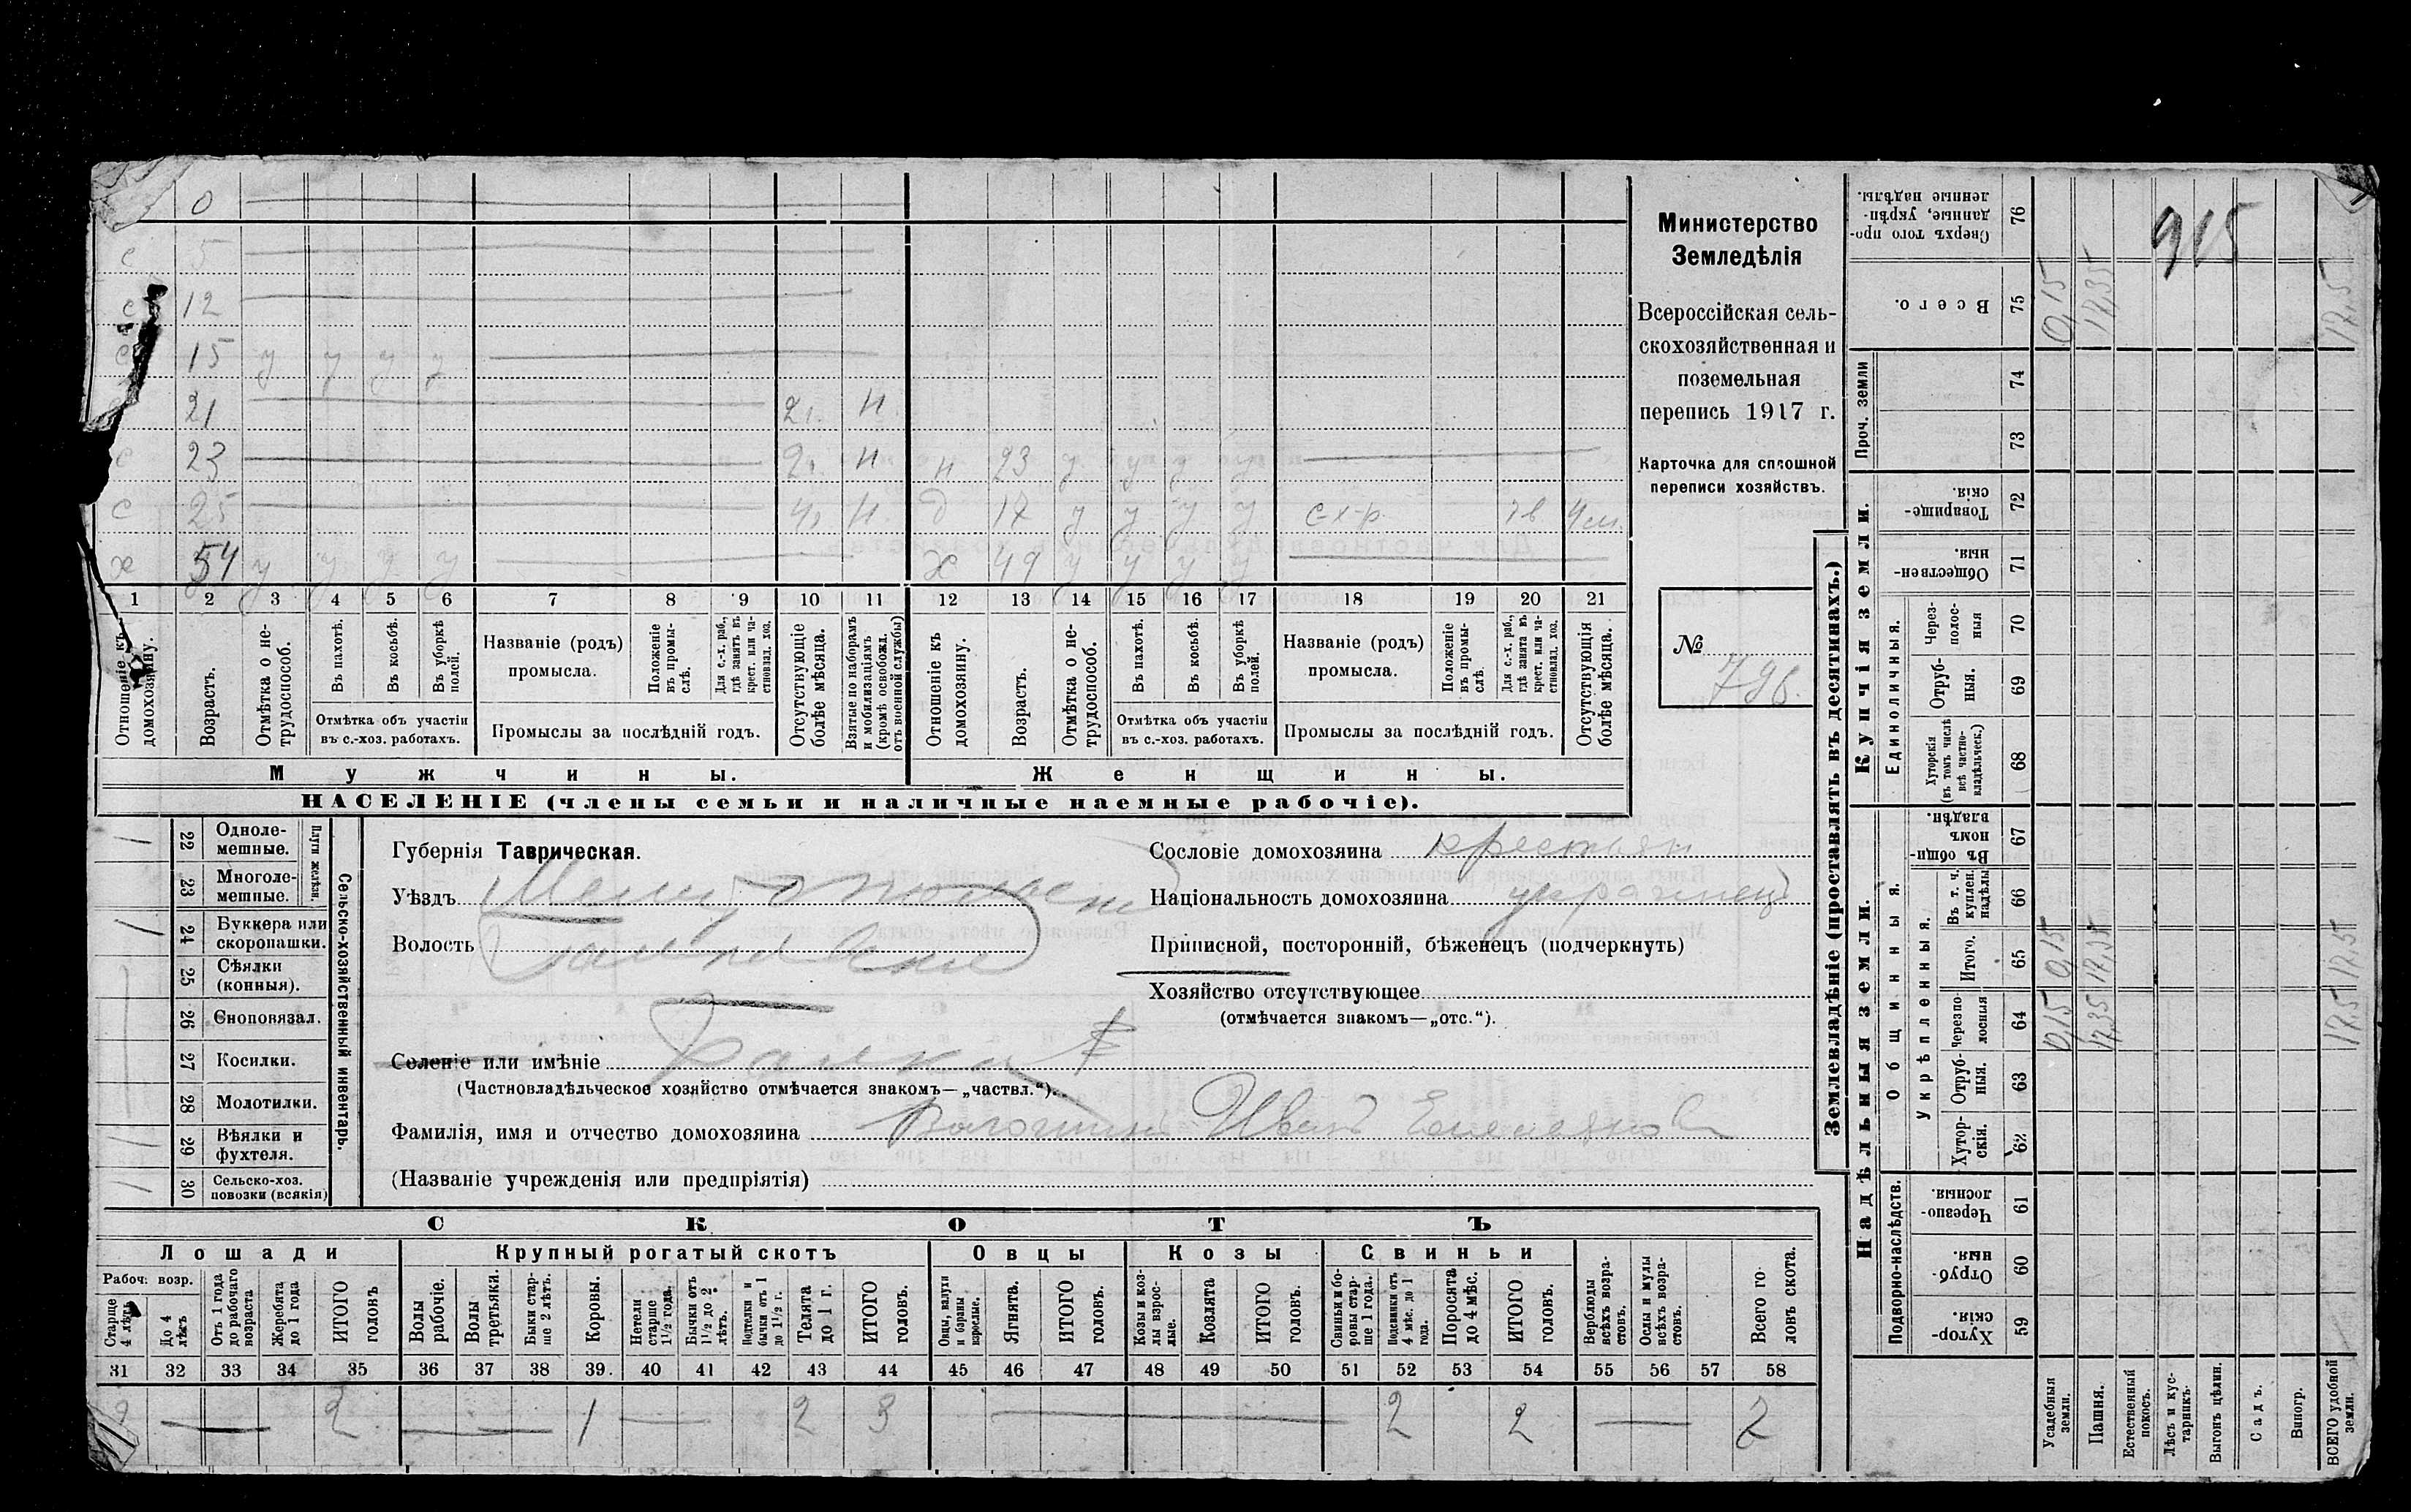 0
с 5
с 12
с 15 у у у у
21 2г. Н
с 23 2г. Н Н 23 у у у у
с 25 4г. Н. д 17 у у у у с-х-р. чв 4 м.
х 54 у у у у х 49 у у у у
1 2 3 4 5 6 7 8 9 10 11 12 13 14 15 16 17 18 19 20 21
Отношеніе къ домохозяину.
Возрастъ.
Отмѣтка о нетрудоспособ.
Въ пахотѣ.
Въ косьбѣ.
Въ уборкѣ полей.
Отмѣтка объ участіи въ с.-хоз. работахъ.
Названіе (родъ) промысла.
Положеніе въ промыслѣ.
Для с.-х. раб., гдѣ занятъ въ крест. или частновлад. хоз.
Промыслы за послѣдній годъ.
Отсутствующіе болѣе мѣсяца.
Взятые по наборамъ и мобилизаціямъ (кромѣ освобожд. отъ военной службы)
Отношеніе къ домохозяину.
Возрастъ.
Отмѣтка о нетрудоспособ.
Въ пахотѣ.
Въ косьбѣ.
Въ уборкѣ полей.
Отмѣтка объ участіи въ с.-хоз. работахъ.
Названіе (родъ) промысла.
Положеніе въ промыслѣ.
Для с.-х. раб., гдѣ занята въ крест. или частновлад. хоз.
Промыслы за послѣдній годъ.
Отсутствующія болѣе мѣсяца.
Мужчины.
Женщины.
НАСЕЛЕНІЕ (члены семьи и наличные наемные рабочіе).
Министерство
Земледѣлія
Всероссійская сель-
скохозяйственная и
поземельная
перепись 1917 г.
Карточка для сплошной
переписи хозяйствъ.
№
796.
Сельско-хозяйственный инвентарь.
Плуги желѣзн.
22 Одноле-
мешные.
23 Многоле-
мешные.
24 Буккера или
скоропашки.
25 Сѣялки
(конныя).
26 Сноповязал.
27 Косилки.
28 Молотилки.
29 Вѣялки и
фухтеля.
30 Сельско-хоз.
повозки (всякія)
Губернія Таврическая.
Уѣздъ
Волость
Селеніе или имѣніе Балки
(Частновладѣльческое хозяйство отмѣчается знакомъ—„частвл.“)..
Фамилія, имя и отчество домохозяина Волошинъ Иванъ Емельянов
(Названіе учрежденія или предпріятія)
Сословіе домохозяина крестьян
Національность домохозяина украинец
Приписной, посторонній, бѣженецъ (подчеркнуть)
Хозяйство отсутствующее
(отмѣчается знакомъ—„отс.“).
СКОТЪ
Лошади Крупный рогатый скотъ Овцы Козы Свиньи
Рабоч. возр.
Старше 4 лѣтъ
До 4 лѣтъ
Отъ 1 года до рабочаго возраста
Жеребята до 1 года
ИТОГО головъ
Волы рабочіе.
Волы третьяки.
Быки старше 2 лѣтъ.
Коровы.
Нетели старше 1 1/2 года.
Бычки отъ 1 1/2 до 2 лѣтъ.
Подтелки и бычки отъ 1 до 1 1/2 г.
Телята до 1 г.
ИТОГО головъ.
Овцы, валухи и бараны взрослые.
Ягнята.
ИТОГО головъ.
Козы и козлы взрослые.
Козлята
ИТОГО головъ.
Свиньи и боровы старше 1 года.
Подсвинки отъ 4 мѣс. до 1 года.
Поросята до 4 мѣс.
ИТОГО головъ.
Верблюды всѣхъ возрастовъ.
Ослы и мулы всѣхъ возрастовъ.
Всего головъ скота.
31 32 33 34 35 36 37 38 39. 40 41 42 43 44 45 46 47 48 49 50 51 52 53 54 55 56 57 58
2 2 1 2 3 2 2 7
Землевладѣніе (проставлять въ десятинахъ.)
Надѣльныя земли.
Купчія земли.
Проч. земли
Подворно-наслѣдств.
Общинныя.
Укрѣпленныя.
Единоличныя.
Сверхъ того проданные, укрѣпленные надѣлы. 76 915
Всего. 75 0,15 17,35 17,5
74
73
Товарищескія. 72
Общественныя. 71
Черезполосныя 70
Отрубныя. 69
Хуторскія (въ томъ числѣ всѣ частновладѣльческ.) 68
Въ общинномъ владѣн. 67
Въ т. ч. куплен. надѣлы 66
Итого. 65 0,15 17,35 17,5
Черезполосныя 64 0,15 17,35 17,5
Отрубныя. 63
Хуторскія. 62
Черезполосныя. 61
Отрубныя. 60
Хуторскія. 59
Усадебныя земли.
Пашня.
Естественный покосъ.
Лѣсъ и кустарникъ.
Выгонъ цѣлин.
Садъ.
Виногр.
ВСЕГО удобной земли.